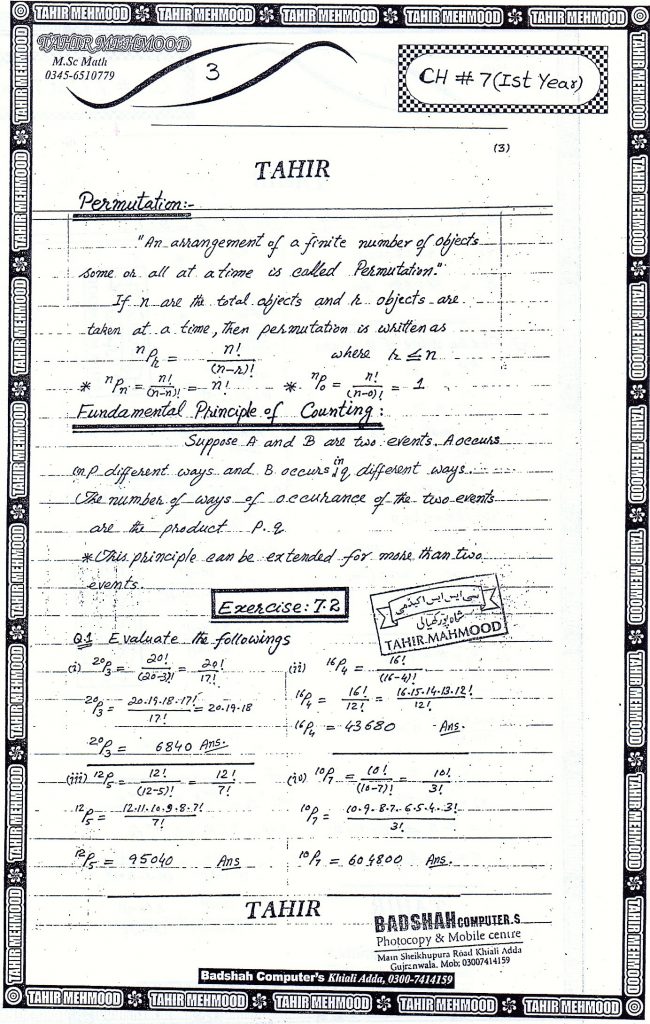 TAHIR MEHMOOD TAHIR MEHMOOD TAHIR MEHMOOD TAHIR MEHMOOD TAHIR MEHMOOD
TAHIR MEHMOOD
M.Sc Math
0345-6510779
3
CH # 7 (Ist Year)
(3)
TAHIR
Permutation:-
"An arrangement of a finite number of objects
some or all at a time is called Permutation."
If n are the total objects and r objects are
taken at a time, then permutation is written as
ⁿPᵣ = n!/(n-r)! where r ≤ n
* ⁿPₙ = n!/(n-n)! = n! * ⁿP₀ = n!/(n-0)! = 1
Fundamental Principle of Counting:
Suppose A and B are two events. A occurs
in p different ways and B occurs in q different ways.
The number of ways of occurance of the two events
are the product P.q
* This principle can be extended for more than two
events.
Exercise: 7.2
سی ایس ایس اکیڈمی
TAHIR MAHMOOD
Q.1 Evaluate the followings
(i) ²⁰P₃ = 20!/(20-3)! = 20!/17!
²⁰P₃ = 20.19.18.17!/17! = 20.19.18
²⁰P₃ = 6840 Ans.
(ii) ¹⁶P₄ = 16!/(16-4)!
¹⁶P₄ = 16!/12! = 16.15.14.13.12!/12!
¹⁶P₄ = 43680 Ans.
(iii) ¹²P₅ = 12!/(12-5)! = 12!/7!
¹²P₅ = 12.11.10.9.8.7!/7!
¹²P₅ = 95040 Ans
(iv) ¹⁰P₇ = 10!/(10-7)! = 10!/3!
¹⁰P₇ = 10.9.8.7.6.5.4.3!/3!
¹⁰P₇ = 604800 Ans.
TAHIR
BADSHAH COMPUTER.S
Photocopy & Mobile centre
Main Sheikhupura Road Khiali Adda
Gujranwala. Mob: 03007414159
Badshah Computer's Khiali Adda, 0300-7414159
TAHIR MEHMOOD TAHIR MEHMOOD TAHIR MEHMOOD TAHIR MEHMOOD TAHIR MEHMOOD